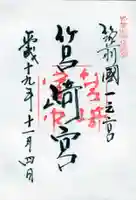 筑前國一之宮
筥崎宮
平成十九年十一月四日